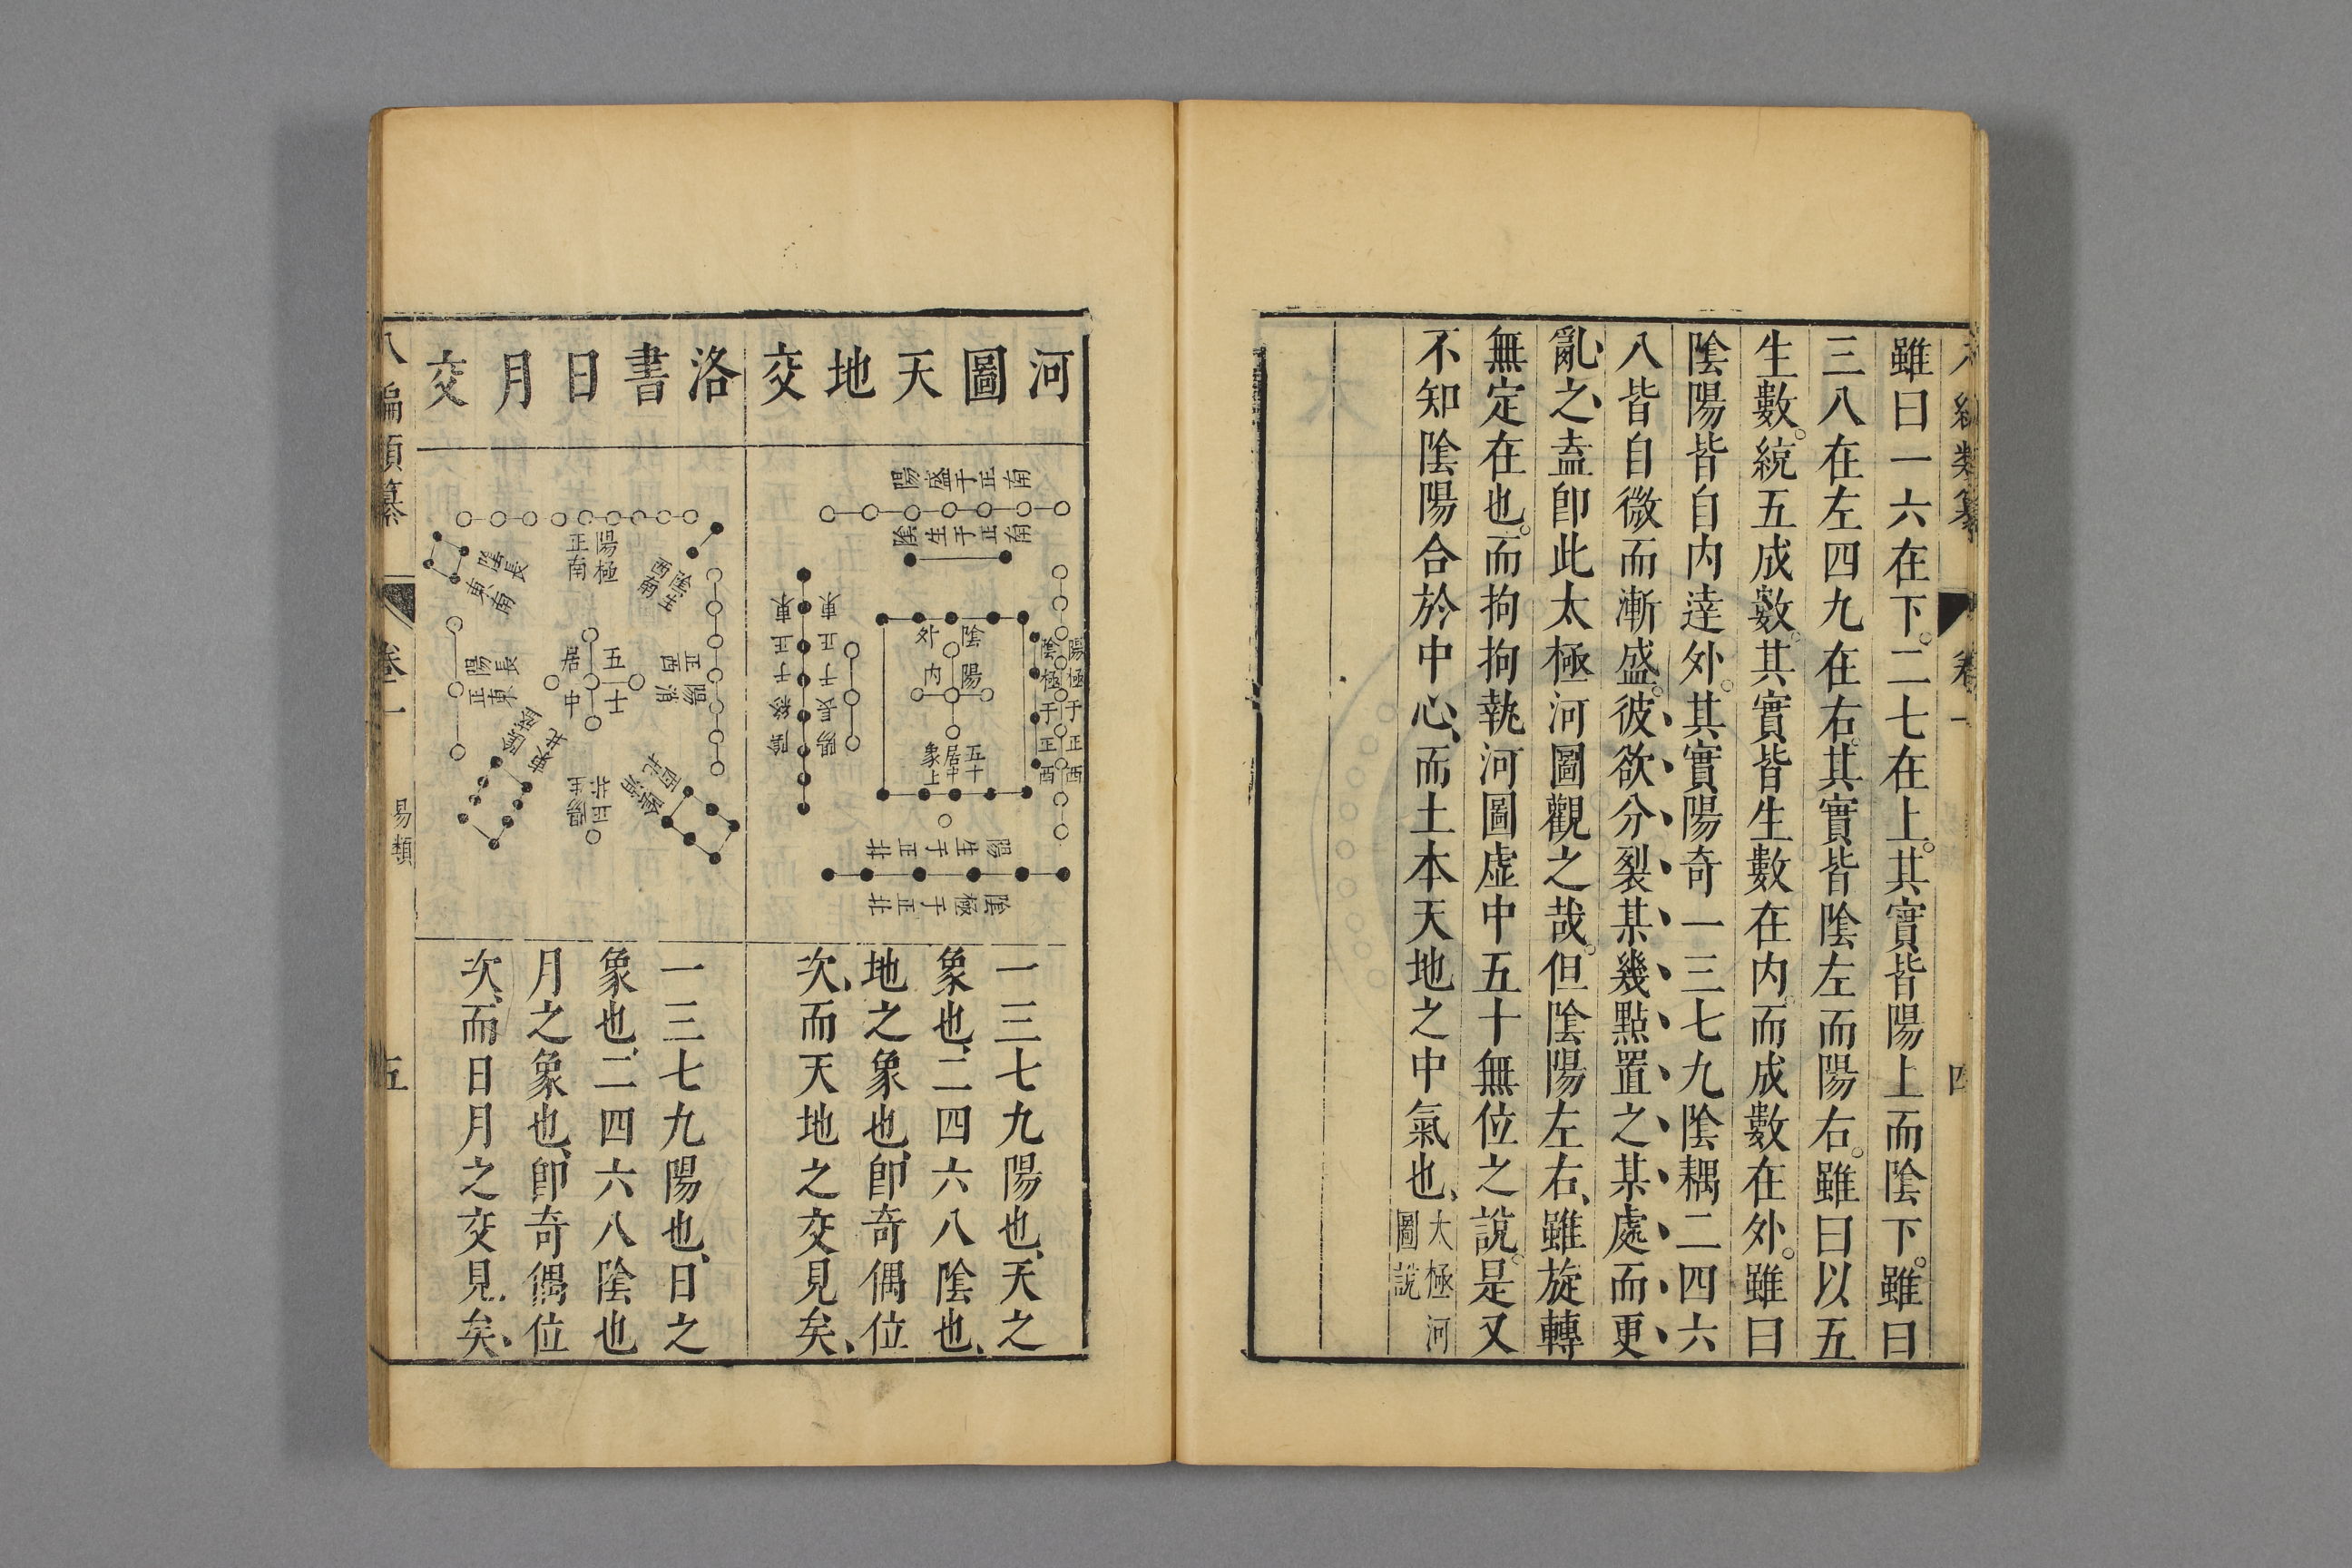 雖曰一六在下二七在上其實皆陽上而陰下雖曰
三八在左四九在右其實皆陰左而陽右雖曰以五
生數統五成數其實皆生數在内而成數在外雖曰
陰陽皆自内達外其實陽奇一三七九陰耦二四六
八皆自微而漸盛彼欲分裂某幾點置之某處而更
亂之盍卽此太極河圖觀之哉但陰陽左右雖旋轉
無定在也而拘拘執河圖虛中五十無位之說是又
不知陰陽合於中心而土本天地之中氣也
太極河
圖說
河圖天地交
陽盛于正南
陰生于正南
陽極于正西
陰極于正西
陰陽
外内
五十
居中
象上
陽長于正東
陰終于正東
陽生于正北
陰極于正北
一三七九陽也天之
象也二四六八陰也
地之象也卽奇偶位
次而天地之交見矣
洛書日月交
陰生
西南
陽極
正南
陰長
東南
陽消
正西
五土
居中
陽長
正東
陰消
西北
陽生
正北
一三七九陽也日之
象也二四六八陰也
月之象也卽奇偶位
次而日月之交見矣
八編類纂
卷一
易類
五